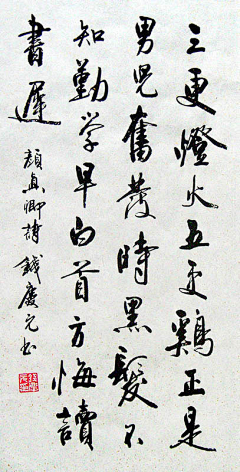 三更燈火五更鷄正是
男児奮發時黑髮不
知勤学早白首方悔讀
書遲
顔真卿詩 錢慶元书